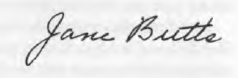 Jane Butts